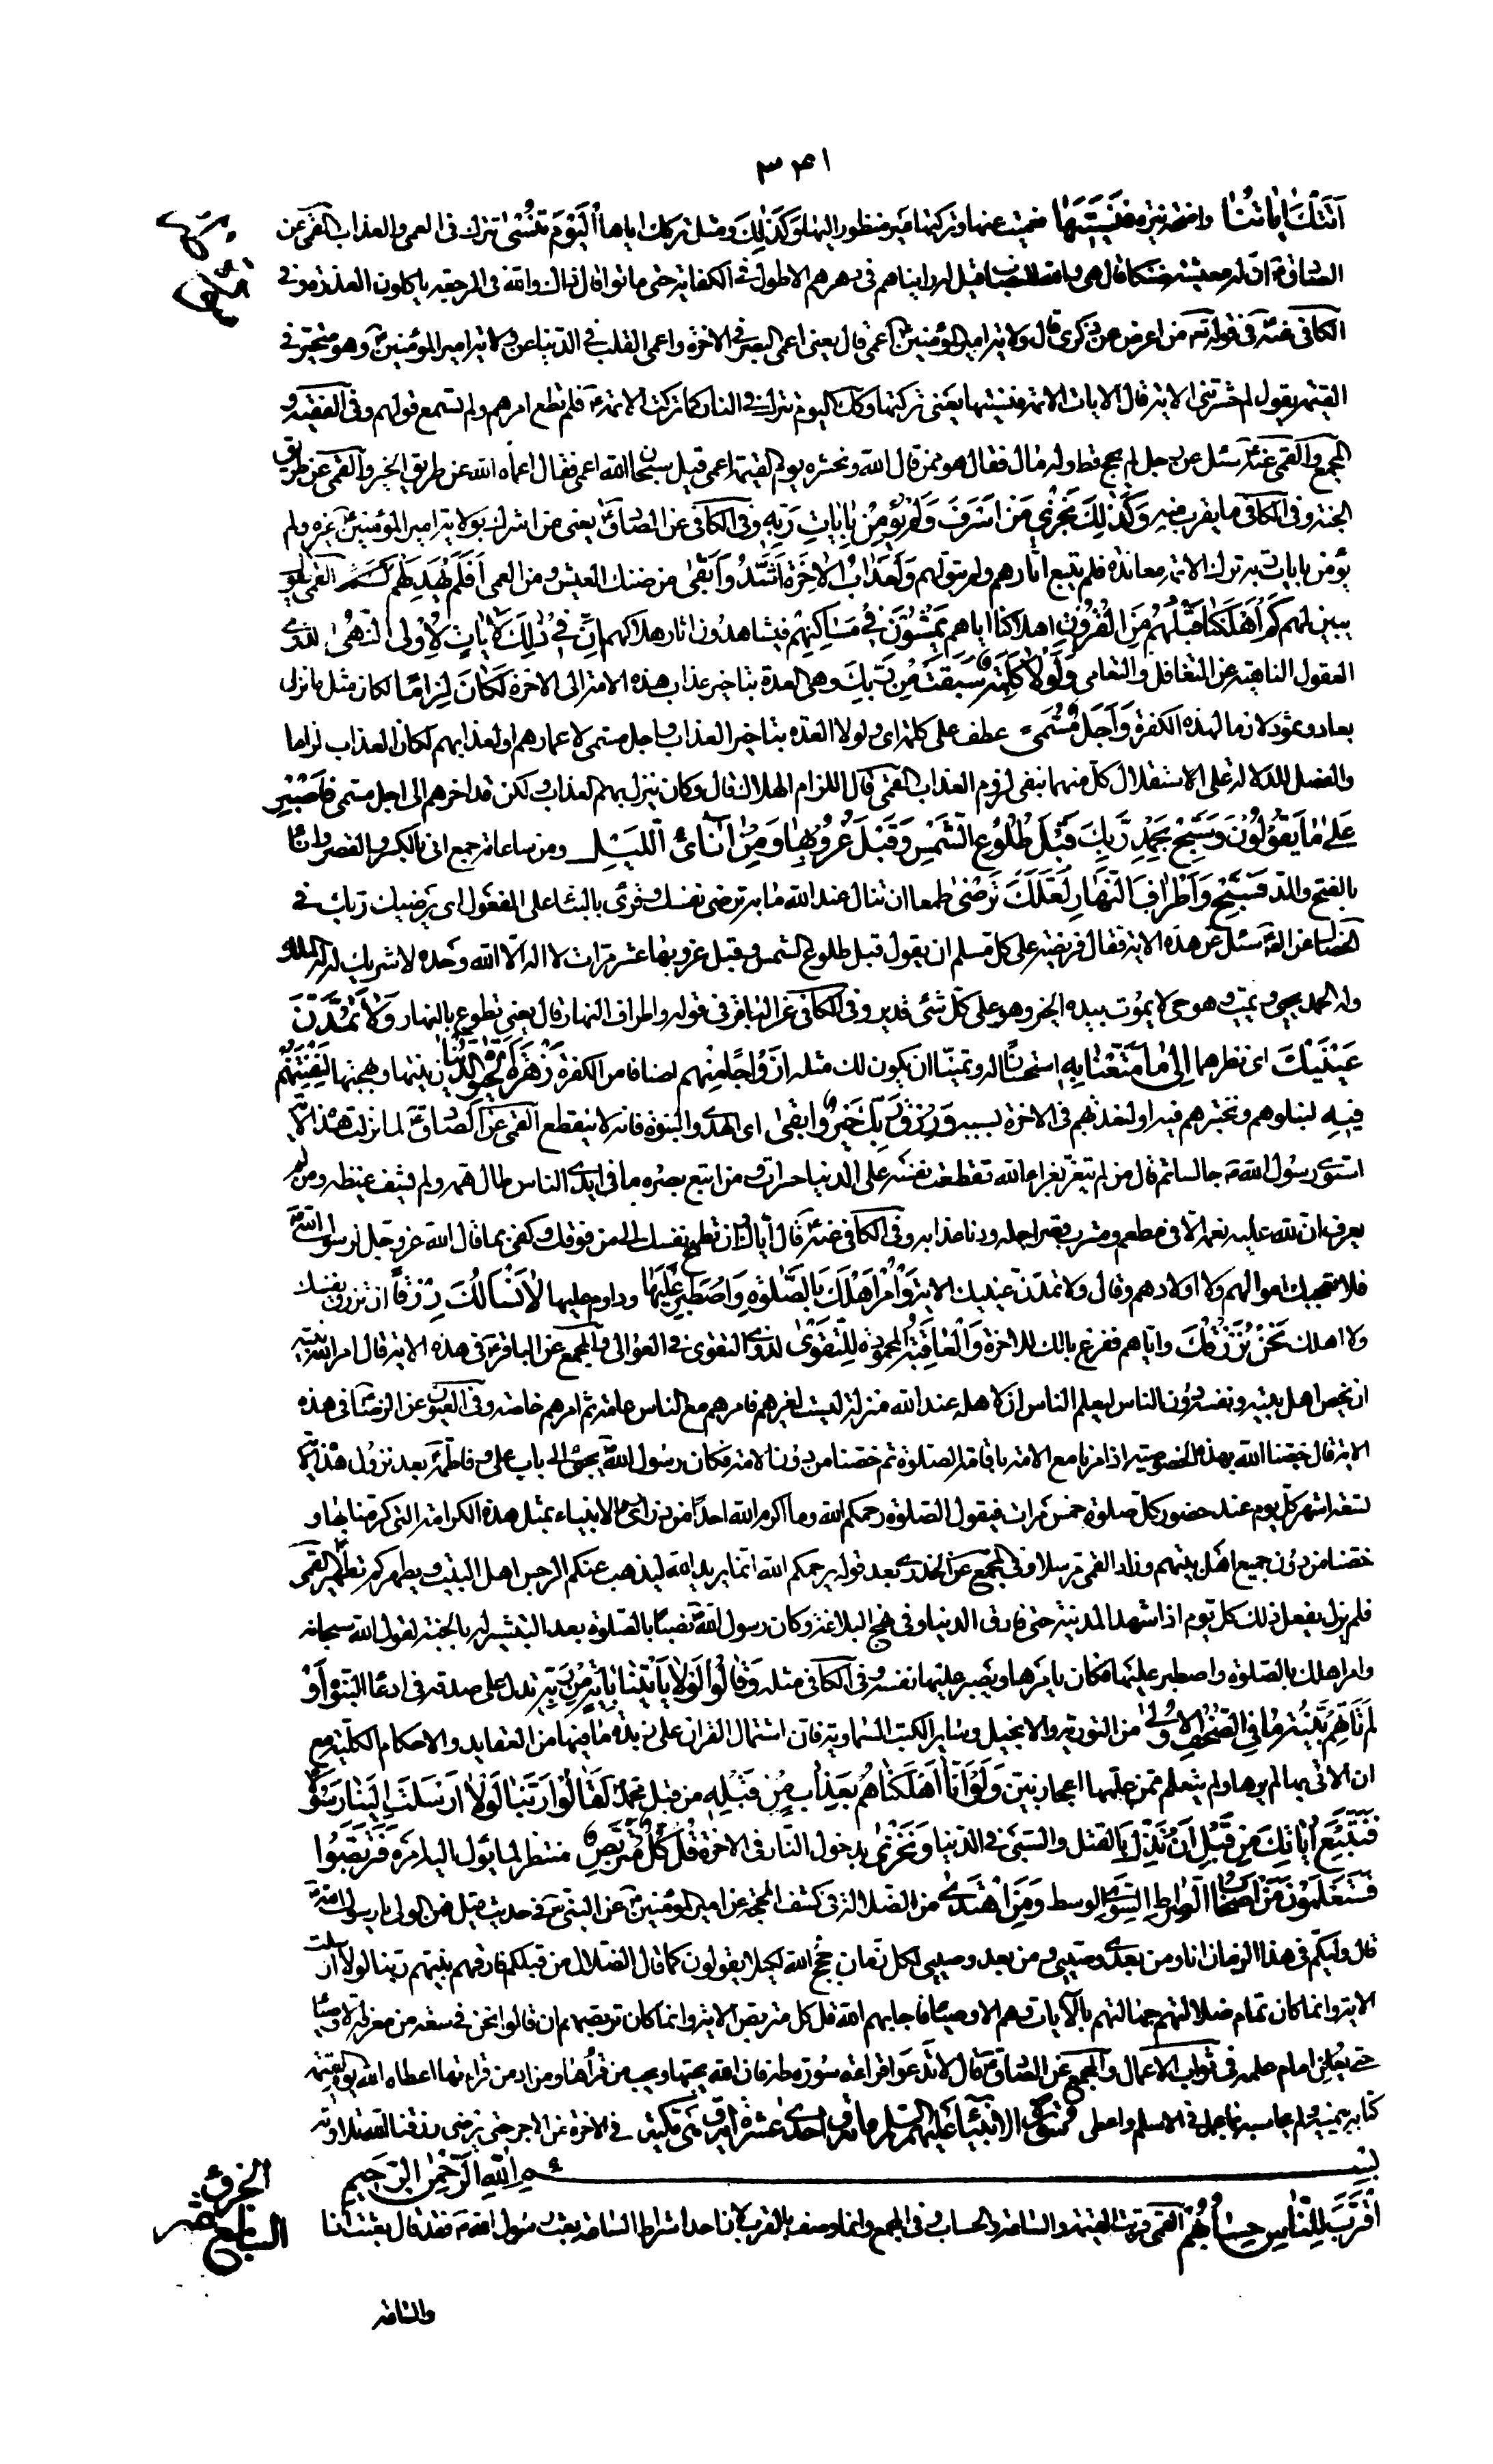 ٣٤١
اَتَتْكَ اٰيَاتُنَا واضحة نيّرة فَنَسِيتَهَا فعميت عنها وتركتها غير منظور اليها وَكَذٰلِكَ ومثل تركك اياها اَلْيَوْمَ تُنْسٰى تترك فى العمى والعذاب القمى عن
الصادق ان له معيشة ضنكا قال هى والله للنصاب قيل له رايناهم فى دهرهم الاطول فى الكفاية حتى ماتوا قال ذاك والله فى الرجعة ياكلون العذرة وفى
الكافى عنه فى قوله تع من اعرض عن ذكرى قال ولاية امير المؤمنين اعمى قال يعنى اعمى البصر فى الاخرة واعمى القلب فى الدنيا عن ولاية امير المؤمنين وهو متحير فى
القيمة يقول لم حشرتنى الاية قال الايات الائمة فنسيتها يعنى تركتها وكذلك اليوم تترك فى النار كما تركت الائمة فلم تطع امرهم ولم تسمع قولهم وفى الفقيه و
المجمع والقمى عنه سئل عن رجل لم يحج قط وله مال فقال هو ممن قال الله ونحشره يوم القيمة اعمى قيل سبحان الله اعمى فقال اعماه الله عن طريق الخير والقمى عن طريق
الجنة وفى الكافى ما يقرب منه وَكَذٰلِكَ نَجْزِي مَنْ اَسْرَفَ وَلَمْ يُؤْمِنْ بِاٰيَاتِ رَبِّهِ وفى الكافى عن الصادق يعنى من اشرك بولاية امير المؤمنين غيره ولم
يؤمن بايات ربه ترك الائمة معاندة فلم يتبع اثارهم ولم يتولهم وَلَعَذَابُ الْاٰخِرَةِ اَشَدُّ وَاَبْقٰى من ضنك العيش ومن العمى اَفَلَمْ يَهْدِ لَهُمْ القمى يقول
يبين لهم كَمْ اَهْلَكْنَا قَبْلَهُمْ مِنَ الْقُرُونِ اهلاكنا اياهم يَمْشُونَ فِي مَسَاكِنِهِمْ فيشاهدون اثار هلاكهم اِنَّ فِي ذٰلِكَ لَاٰيَاتٍ لِاُولِي النُّهٰى لذوى
العقول الناهية عن التغافل والتعامى وَلَوْلَا كَلِمَةٌ سَبَقَتْ مِنْ رَبِّكَ وهى العدة بتاخير عذاب هذه الامة الى الاخرة لَكَانَ لِزَامًا لكان مثل ما نزل
بعاد وثمود لازما لهذه الكفرة وَاَجَلٌ مُسَمًّى عطف على كلمة اى ولولا العدة بتاخير العذاب واجل مسمى لاعمارهم او لعذابهم لكان العذاب لزاما
والفصل للدلالة على الاستقلال كل منهما بنفى لزوم العذاب القمى قال اللزام الهلاك قال وكان ينزل بهم العذاب ولكن قد اخرهم الى اجل مسمى فَاصْبِرْ
عَلٰى مَا يَقُولُونَ وَسَبِّحْ بِحَمْدِ رَبِّكَ قَبْلَ طُلُوعِ الشَّمْسِ وَقَبْلَ غُرُوبِهَا وَمِنْ اٰنَاءِ اللَّيْلِ ومن ساعاته جمع انى بالكسر والقصر واناء
بالفتح والمد فَسَبِّحْ وَاَطْرَافَ النَّهَارِ لَعَلَّكَ تَرْضٰى طمعا ان تنال عند الله ما به ترضى نفسك وقرئ بالبناء على المفعول اى يرضيك ربك فى
الخصال عن الصادق سئل عن هذه الاية فقال فريضة على كل مسلم ان يقول قبل طلوع الشمس وقبل غروبها عشر مرات لا اله الا الله وحده لا شريك له له الملك
وله الحمد يحيى ويميت وهو حى لا يموت بيده الخير وهو على كل شئ قدير وفى الكافى عن الباقر فى قوله واطراف النهار قال يعنى تطوع بالنهار وَلَا تَمُدَّنَّ
عَيْنَيْكَ اى نظرهما اِلٰى مَا مَتَّعْنَا بِهِ استحسانا له وتمنيا ان يكون لك مثله اَزْوَاجًا مِنْهُمْ اصنافا من الكفرة زَهْرَةَ الْحَيٰوةِ الدُّنْيَا زينتها وبهجتها لِنَفْتِنَهُمْ
فِيهِ لنبلوهم ونختبرهم فيه او لنعذبهم فى الاخرة بسببه وَرِزْقُ رَبِّكَ خَيْرٌ وَاَبْقٰى اى الهدى والنبوة فانه لا ينقطع القمى عن الصادق لما نزلت هذه الاية
استوى رسول الله ص جالسا ثم قال من لم يتعز بعزاء الله تقطعت نفسه على الدنيا حسرات ومن اتبع بصره ما فى ايدى الناس طال همه ولم يشف غيظه ومن لم
يعرف ان لله عليه نعمة الا فى مطعم ومشرب قصر اجله ودنا عذابه وفى الكافى عنه قال اياك وان تطمح نفسك الى من فوقك وكفى بما قال الله عز وجل لرسول الله
فلا تعجبك اموالهم ولا اولادهم وقال ولا تمدن عينيك الاية وَاْمُرْ اَهْلَكَ بِالصَّلٰوةِ وَاصْطَبِرْ عَلَيْهَا وداوم عليها لَا نَسْاَلُكَ رِزْقًا ان ترزق نفسك
ولا اهلك نَحْنُ نَرْزُقُكَ واياهم ففرغ بالك للاخرة وَالْعَاقِبَةُ المحمودة لِلتَّقْوٰى لذوى التقوى فى العوالى والمجمع عن الباقر فى هذه الاية قال امر الله نبيه
ان يخص اهل بيته ونفسه دون الناس ليعلم الناس ان لاهله عند الله منزلة ليست لغيرهم فامرهم مع الناس عامة ثم امرهم خاصة وفى العيون عن الرضا فى هذه
الاية قال خصنا الله بهذه الخصوصية اذ امرنا مع الامة باقامة الصلوة ثم خصنا من دون الامة فكان رسول الله يجئ الى باب على وفاطمة بعد نزول هذه الاية
لتسعة اشهر كل يوم عند حضور كل صلوة خمس مرات فيقول الصلوة رحمكم الله وما اكرم الله احدا من ذرارى الانبياء بمثل هذه الكرامة التى اكرمنا بها و
خصنا من دون جميع اهل بيتهم وزاد القمى مرسلا وفى المجمع عن الخدرى بعد قوله يرحمكم الله انما يريد الله ليذهب عنكم الرجس اهل البيت ويطهركم تطهيرا القمى
فلم يزل يفعل ذلك كل يوم اذا شهد المدينة حتى فارق الدنيا وفى نهج البلاغة وكان رسول الله نصبا بالصلوة بعد التبشير له بالجنة لقول الله سبحانه
وامر اهلك بالصلوة واصطبر عليها فكان يامر بها ويصبر عليها نفسه وفى الكافى مثله وَقَالُوا لَوْلَا يَاْتِينَا بِاٰيَةٍ مِنْ رَبِّهِ تدل على صدقه فى ادعاء النبوة اَوَ
لَمْ تَاْتِهِمْ بَيِّنَةُ مَا فِي الصُّحُفِ الْاُولٰى من التورية والانجيل وساير الكتب السماوية فان اشتمال القران على زبدة ما فيها من العقايد والاحكام الكلية مع
ان الاتى بها لم يرها ولم يتعلم ممن علمها اعجاز بين وَلَوْ اَنَّا اَهْلَكْنَاهُمْ بِعَذَابٍ مِنْ قَبْلِهِ من قبل محمد لَقَالُوا رَبَّنَا لَوْلَا اَرْسَلْتَ اِلَيْنَا رَسُولًا
فَنَتَّبِعَ اٰيَاتِكَ مِنْ قَبْلِ اَنْ نَذِلَّ بالقتل والسبى فى الدنيا وَنَخْزٰى بدخول النار فى الاخرة قُلْ كُلٌّ مُتَرَبِّصٌ منتظر لما يؤل اليه امره فَتَرَبَّصُوا
فَسَتَعْلَمُونَ مَنْ اَصْحَابُ الصِّرَاطِ السَّوِيِّ الوسط وَمَنِ اهْتَدٰى من الضلالة فى كشف المحجة عن امير المؤمنين عن النبى ص فى حديث قيل فمن الولى يا رسول الله
قال وليكم فى هذا الزمان انا ومن بعدى وصيى ومن بعد وصيى لكل زمان حجج الله لكيلا يقولون كما قال الضلال من قبلكم فارقهم نبيهم ربنا لولا ارسلت
الاية وانما كان تمام ضلالتهم جهالتهم بالآيات وهم الاوصياء فاجابهم الله قل كل متربص الاية وانما كان تربصهم ان قالوا نحن فى سعة من معرفة الاوصياء
حتى يعلن امام علمه فى ثواب الاعمال والمجمع عن الصادق قال لا تدعوا قراءة سورة طه فان الله يحبها ويحب من قرأها ومن ادمن قراءتها اعطاه الله يوم القيمة
كتابه بيمينه ولم يحاسبه بما عمل فى الاسلام واعطى فى الاخرة من الاجر حتى يرضى رزقنا الله تلاوته
سورة الانبياء عليهم السلام مائة واحدى عشرة اية مكية
بسم الله الرحمن الرحيم
اِقْتَرَبَ لِلنَّاسِ حِسَابُهُمْ القمى قربت القيمة والساعة والحساب وفى المجمع وانما وصف بالقرب لان احد اشراط الساعة بعث رسول الله ص فقد قال بعثت انا
الجزؤ
السابع عشر
والساعة